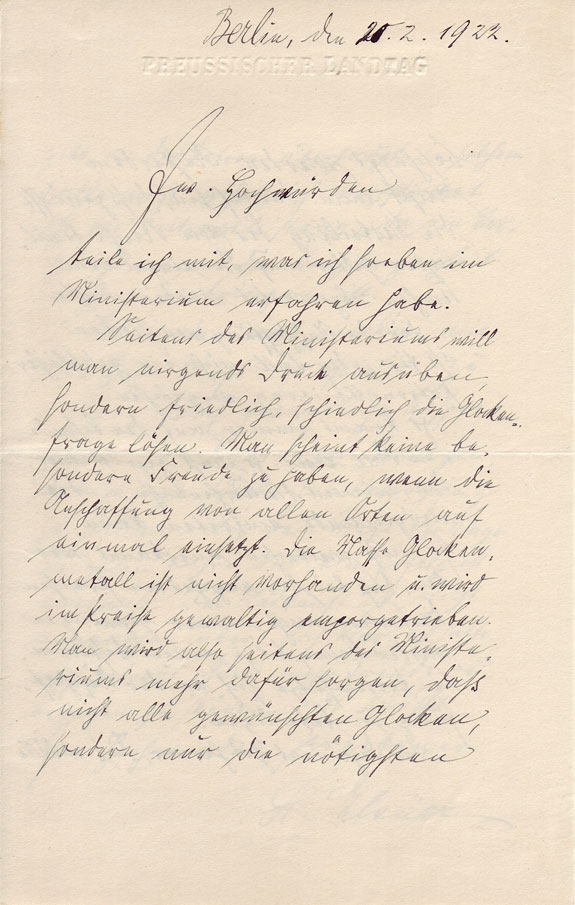 Berlin, den 20.2.1922.
PREUSSISCHER LANDTAG
Euer Hochwürden
teile ich mit, was ich soeben im
Ministerium erfahren habe.
Seitens des Ministeriums will
man nirgends Druck ausüben,
sondern friedlich, schiedlich die Glocken-
frage lösen. Man scheint keine be-
sondere Freude zu haben, wenn die
Anschaffung von allen Orten auf
einmal einsetzt. Die Masse Glocken-
metall ist nicht vorhanden u. wird
im Preise gewaltig emporgetrieben.
Man wird also seitens des Ministe-
riums mehr dafür sorgen, daß
nicht alle gewünschten Glocken,
sondern nur die nötigsten